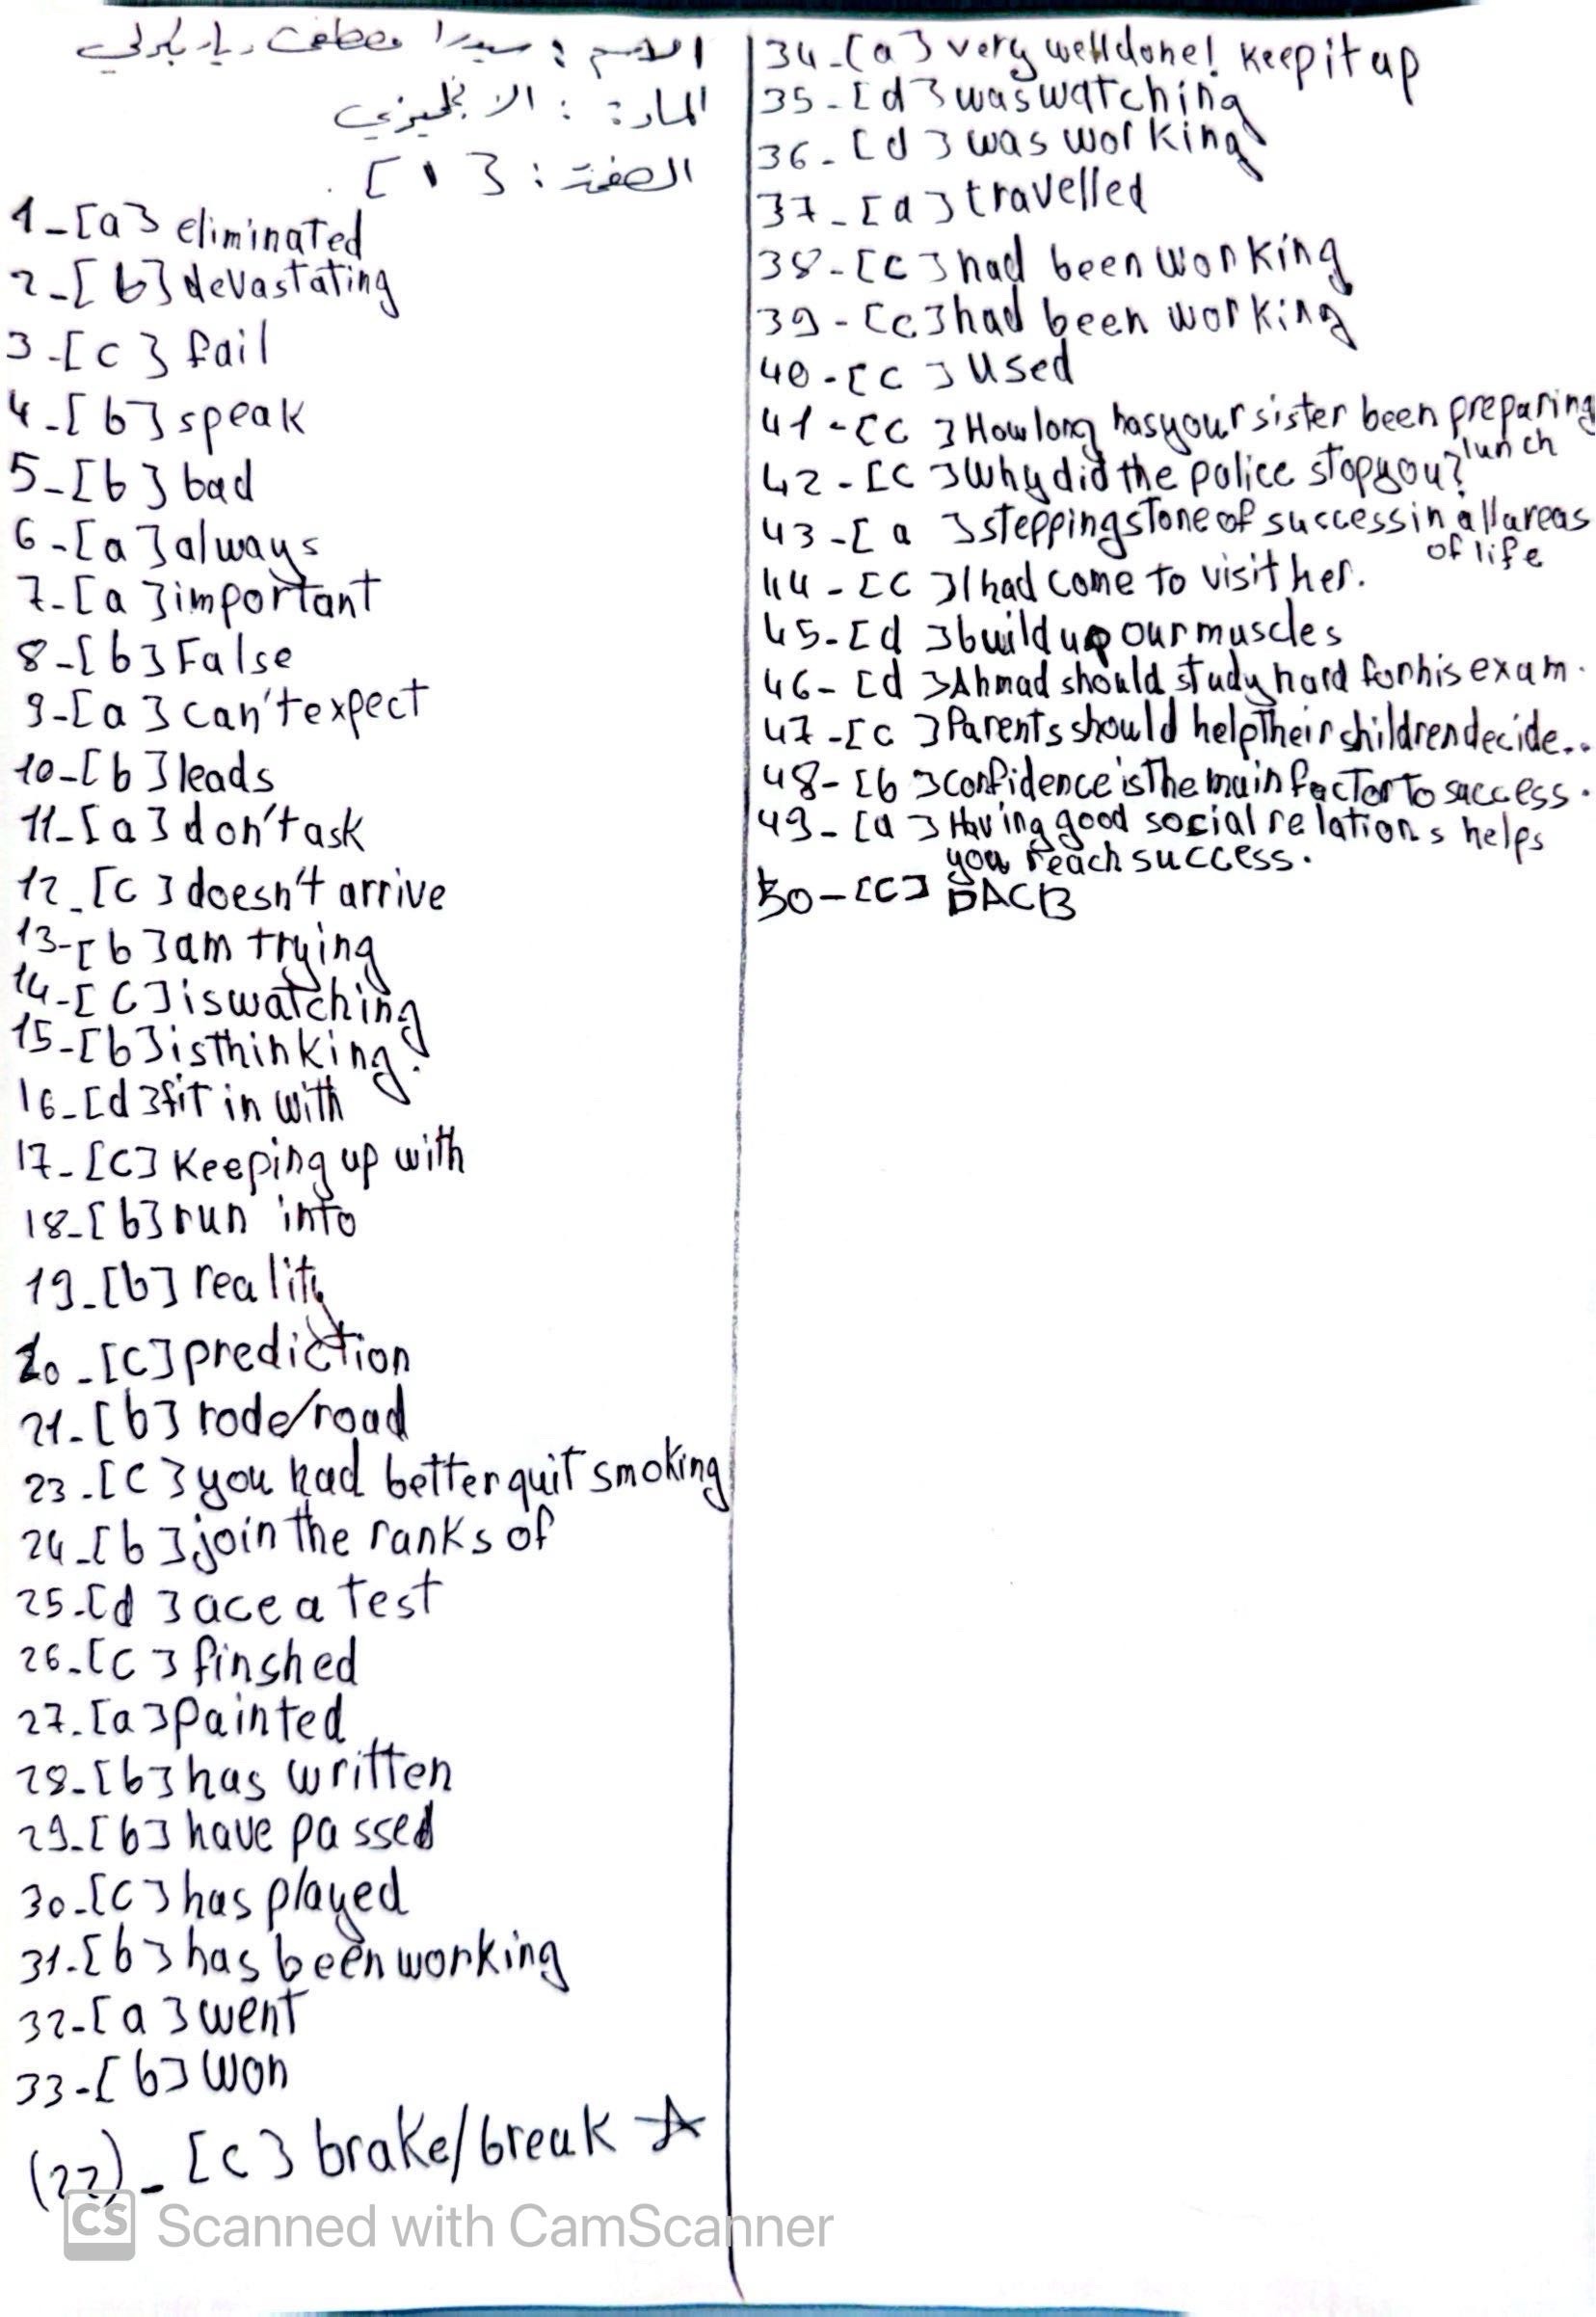 الاسم : سيدرا مصطفى ديار بكرلي
المادة : الانجليزي
الصفحة : [ ١ ]
1_[a] eliminated
2_[b] devastating
3_[c] fail
4_[b] speak
5_[b] bad
6_[a] always
7_[a] important
8_[b] False
9_[a] can't expect
10_[b] leads
11_[a] don't ask
12_[c] doesn't arrive
13-[b] am trying
14-[C] is watching
15-[b] is thinking.
16_[d] fit in with
17_[C] Keeping up with
18_[b] run into
19_[b] reality
20_[C] prediction
21_[b] rode/road
23_[C] you had better quit smoking
24_[b] join the ranks of
25_[d] ace a test
26_[C] finshed
27_[a] Painted
28_[b] has written
29_[b] have passed
30_[C] has played
31_[b] has been working
32-[a] went
33-[b] won
(22)_ [c] brake/break ☆
34_[a] very well done! keep it up
35-[d] was watching
36_[d] was working
37_[a] travelled
38-[c] had been working
39-[c] had been working
40-[c] Used
41-[c] How long has your sister been preparing
lunch
42-[c] Why did the police stop you?
43-[a] stepping stone of success in all areas
of life
44-[c] I had come to visit her.
45-[d] build up our muscles
46-[d] Ahmad should study hard for his exam.
47-[c] Parents should help their shildren decide..
48-[b] confidence is the main factor to success.
49-[a] Having good social relations helps
you reach success.
50-[C] DACB
CS Scanned with CamScanner